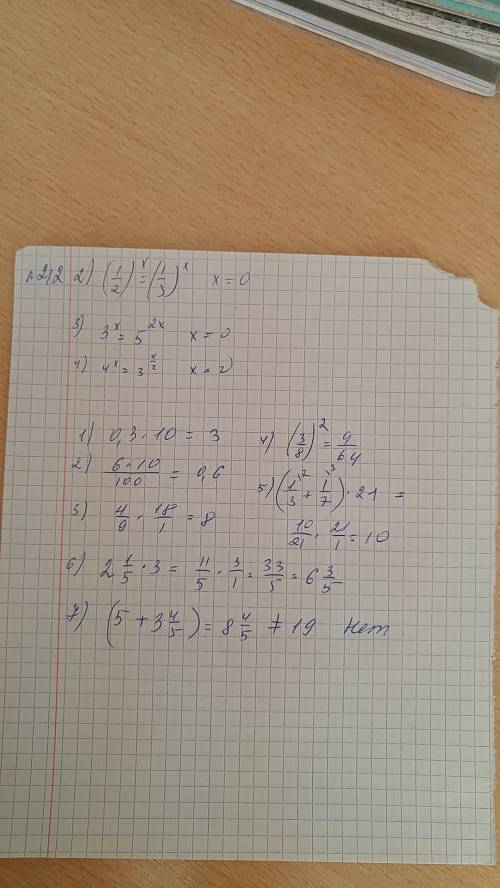 №212 2) (1/2)^x = (1/3)^x x = 0
3) 3^x = 5^(2x) x = 0
4) 4^x = 3^(x/2)
1) 0,3 · 10 = 3
2) (6 · 10)/100 = 0,6
3) 4/9 · 18/1 = 8
4) (3/8)^2 = 9/64
5) (1/3^(\7) + 1/7^(\3)) · 21 =
10/21 · 21/1 = 10
6) 2 1/5 · 3 = 11/5 · 3/1 = 33/5 = 6 3/5
7) (5 + 3 4/5) = 8 4/5 ≠ 19 Нет